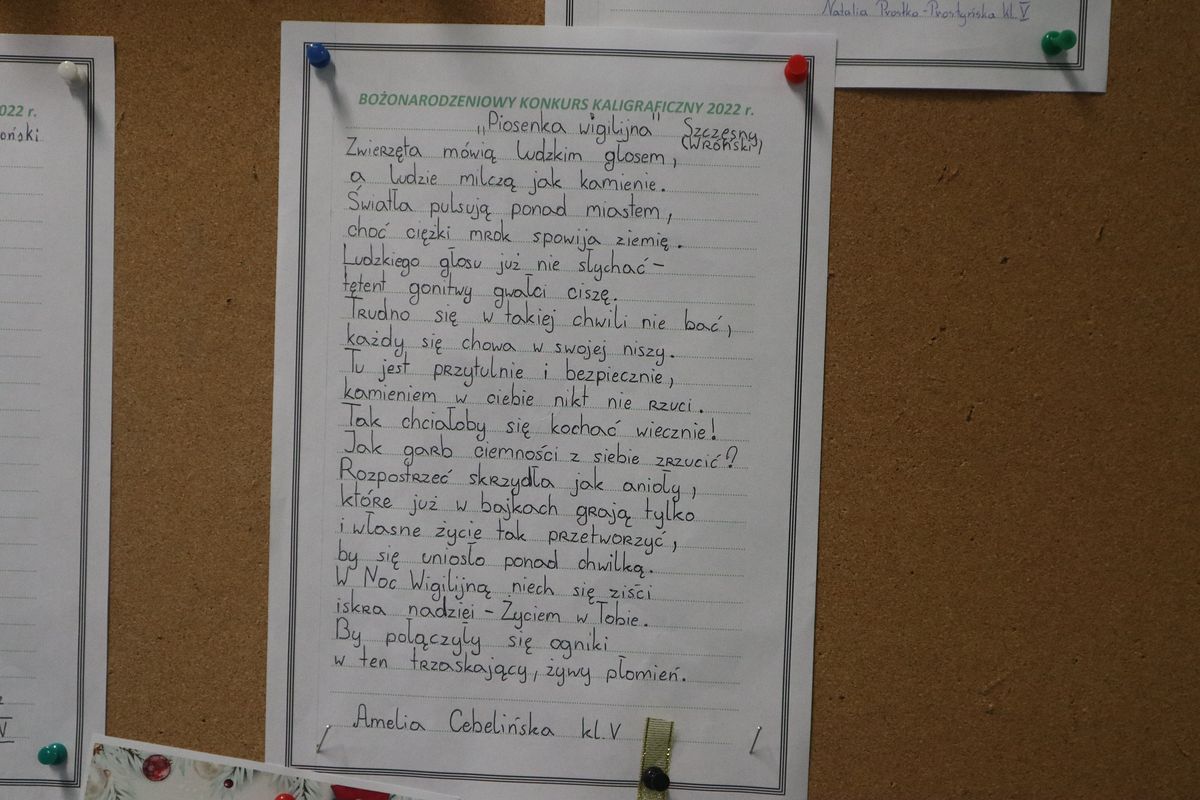 Natalia Prostko-Prostyńska kl. V
022 r.
oński
V
BOŻONARODZENIOWY KONKURS KALIGRAFICZNY 2022 r.
„Piosenka wigilijna" Szczęsny
(Wroński)
Zwierzęta mówią ludzkim głosem,
a ludzie milczą jak kamienie.
Światła pulsują ponad miastem,
choć ciężki mrok spowija ziemię.
Ludzkiego głosu już nie słychać –
tętent gonitwy gwałci ciszę.
Trudno się w takiej chwili nie bać,
każdy się chowa w swojej niszy.
Tu jest przytulnie i bezpiecznie,
kamieniem w ciebie nikt nie rzuci.
Tak chciałoby się kochać wiecznie!
Jak garb ciemności z siebie zrzucić?
Rozpostrzeć skrzydła jak anioły,
które już w bajkach grają tylko
i własne życie tak przetworzyć,
by się uniosło ponad chwilką.
W Noc Wigilijną niech się ziści
iskra nadziei – Życiem w Tobie.
By połączyły się ogniki
w ten trzaskający, żywy płomień.
Amelia Cebelińska kl. V